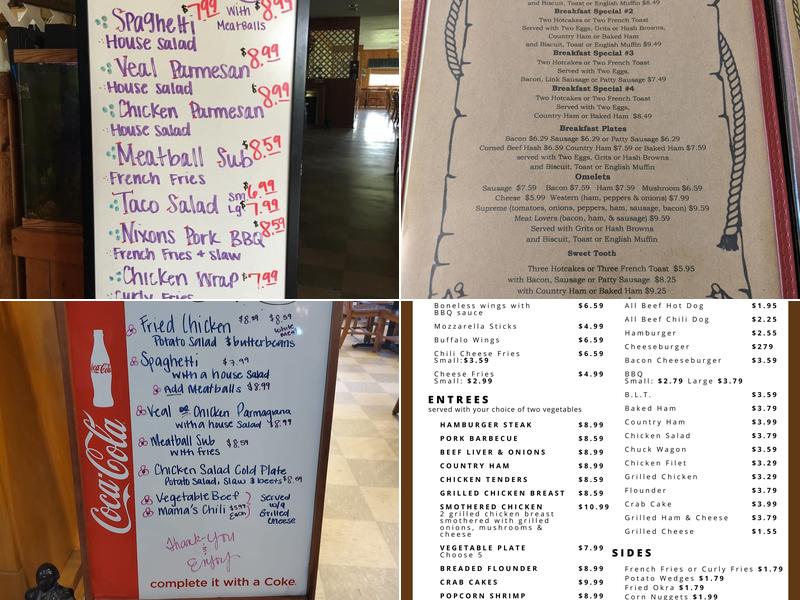 $7.99 With $8.99
Spaghetti Meatballs
House salad
Veal Parmesan $8.99
House salad
Chicken Parmesan $8.99
House Salad
Meatball Sub $8.59
French Fries
Taco Salad Sm $6.99
Lg $7.99
Nixons Pork BBQ $8.59
French Fries + slaw
Chicken Wrap $7.99
Curly Fries
and Biscuit, Toast or English Muffin $8.49
Breakfast Special #2
Two Hotcakes or Two French Toast
Served with Two Eggs, Grits or Hash Browns,
Country Ham or Baked Ham
and Biscuit, Toast or English Muffin $9.49
Breakfast Special #3
Two Hotcakes or Two French Toast
Served with Two Eggs,
Bacon, Link Sausage or Patty Sausage $7.49
Breakfast Special #4
Two Hotcakes or Two French Toast
Served with Two Eggs,
Country Ham or Baked Ham $8.49
Breakfast Plates
Bacon $6.29 Sausage $6.29 or Patty Sausage $6.29
Corned Beef Hash $6.59 Country Ham $7.59 or Baked Ham $7.59
served with Two Eggs, Grits or Hash Browns
and Biscuit, Toast or English Muffin
Omelets
Sausage $7.59 Bacon $7.59 Ham $7.59 Mushroom $6.59
Cheese $5.99 Western (ham, peppers & onions) $7.99
Supreme (tomatoes, onions, peppers, ham, sausage, bacon) $9.59
Meat Lovers (bacon, ham, & sausage) $9.59
Served with Grits or Hash Browns
and Biscuit, Toast or English Muffin
Sweet Tooth
Three Hotcakes or Three French Toast $5.95
with Bacon, Sausage or Patty Sausage $8.25
with Country Ham or Baked Ham $9.25
Coca-Cola
Coca-Cola
Fried Chicken $8.59 $8.59 White meat
Potato Salad & butterbeans
Spaghetti $7.99
with a house salad
Add Meatballs $8.99
Veal or Chicken Parmagiana
with a house salad $8.99
Meatball Sub $8.59
with fries
Chicken Salad Cold Plate
Potato Salad, slaw & beets $8.59
Vegetable Beef Served
Mama's Chili $5.99 each w/a
Grilled
Cheese
Thank-You
&
Enjoy
complete it with a Coke.
Boneless wings with $6.59
BBQ sauce
Mozzarella Sticks $4.99
Buffalo Wings $6.59
Chili Cheese Fries $6.59
Small:$3.59
Cheese Fries $4.99
Small: $2.99
ENTREES
served with your choice of two vegetables
HAMBURGER STEAK $8.99
PORK BARBECUE $8.59
BEEF LIVER & ONIONS $8.99
COUNTRY HAM $8.99
CHICKEN TENDERS $8.59
GRILLED CHICKEN BREAST $8.59
SMOTHERED CHICKEN $10.99
2 grilled chicken breast
smothered with grilled
onions, mushrooms &
cheese
VEGETABLE PLATE $7.99
Choose 5
BREADED FLOUNDER $8.99
CRAB CAKES $9.99
POPCORN SHRIMP $8.99
All Beef Hot Dog $1.95
All Beef Chili Dog $2.25
Hamburger $2.55
Cheeseburger $279
Bacon Cheeseburger $3.59
BBQ
Small: $2.79 Large $3.79
B.L.T. $3.59
Baked Ham $3.79
Country Ham $3.99
Chicken Salad $3.79
Chuck Wagon $3.59
Chicken Filet $3.29
Grilled Chicken $3.29
Flounder $3.79
Crab Cake $3.99
Grilled Ham & Cheese $3.79
Grilled Cheese $1.55
SIDES
French Fries or Curly Fries $1.79
Potato Wedges $1.79
Fried Okra $1.79
Corn Nuggets $1.99